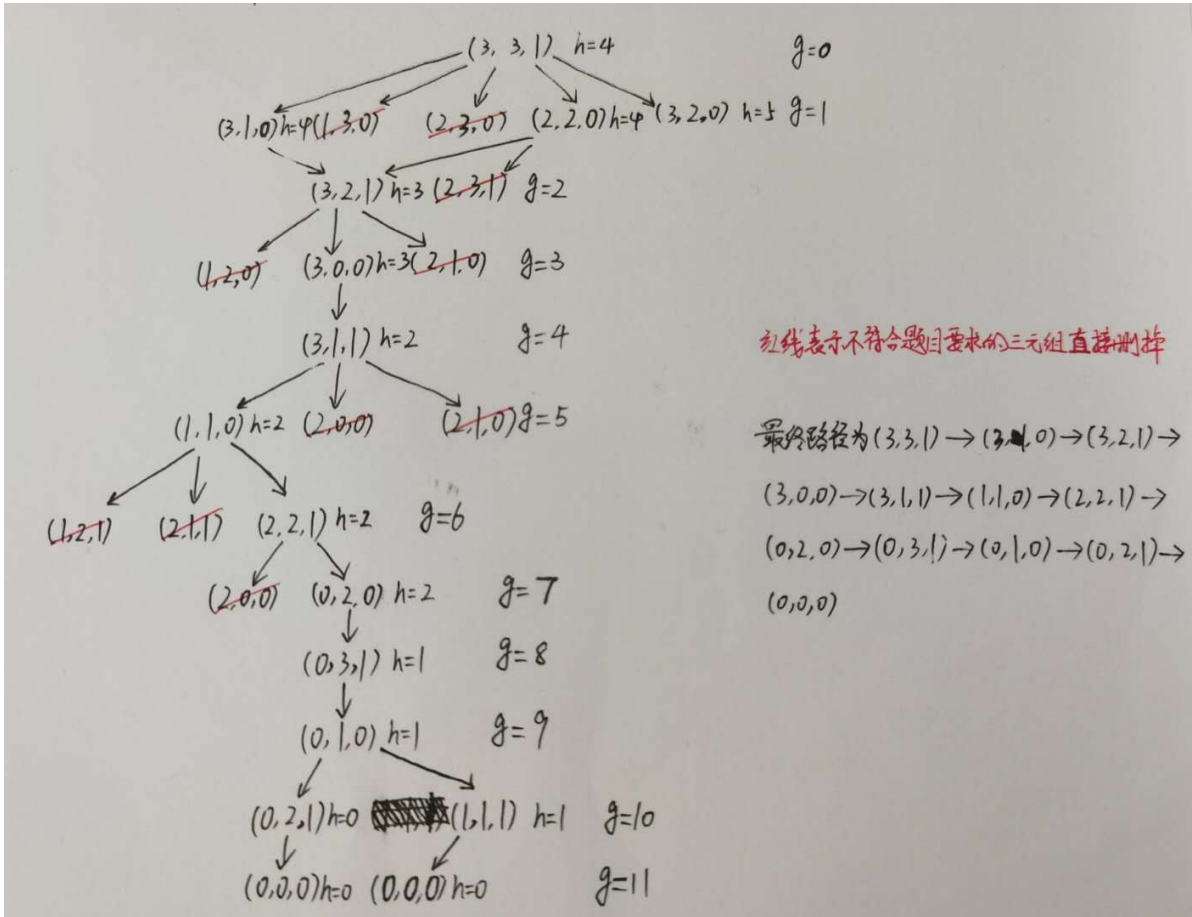 (3, 3, 1) h=4 g=0
(3,1,0)h=4 (1,3,0) (2,3,0) (2,2,0)h=4 (3,2,0) h=5 g=1
(3,2,1) h=3 (2,3,1) g=2
(1,2,0) (3,0,0)h=3 (2,1,0) g=3
(3,1,1) h=2 g=4
(1,1,0) h=2 (2,0,0) (2,1,0) g=5
(1,2,1) (2,1,1) (2,2,1) h=2 g=6
(2,0,0) (0,2,0) h=2 g=7
(0,3,1) h=1 g=8
(0,1,0) h=1 g=9
(0,2,1)h=0 (1,1,1) h=1 g=10
(0,0,0)h=0 (0,0,0)h=0 g=11
红线表示不符合题目要求的三元组直接删掉
最终路径为(3,3,1)→(3,1,0)→(3,2,1)→
(3,0,0)→(3,1,1)→(1,1,0)→(2,2,1)→
(0,2,0)→(0,3,1)→(0,1,0)→(0,2,1)→
(0,0,0)